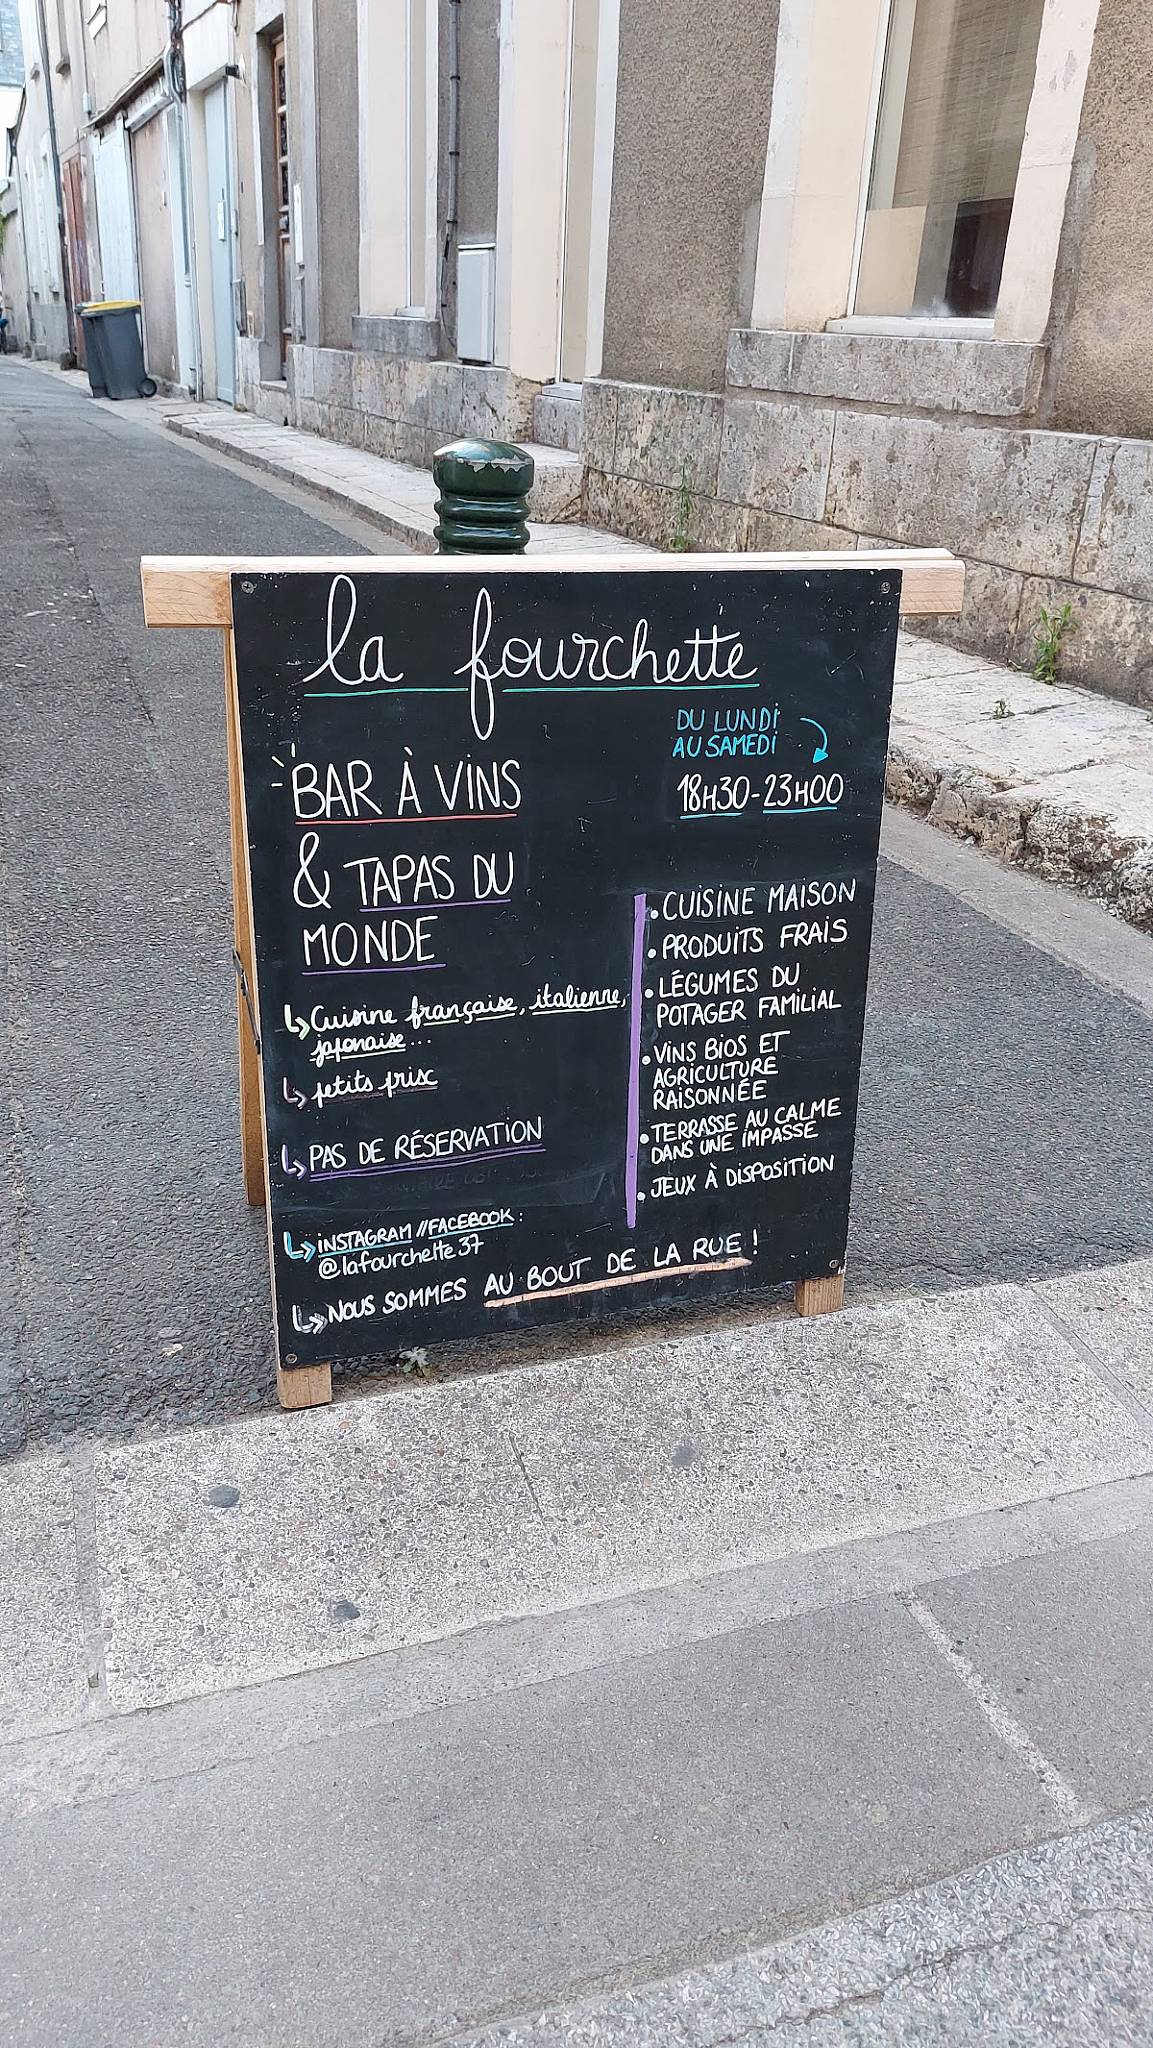 la fourchette
DU LUNDI
AU SAMEDI
18H30-23H00
BAR À VINS
& TAPAS DU
MONDE
Cuisine française, italienne,
japonaise...
petits prix
PAS DE RÉSERVATION
INSTAGRAM //FACEBOOK :
@lafourchette37
• CUISINE MAISON
• PRODUITS FRAIS
• LÉGUMES DU
POTAGER FAMILIAL
• VINS BIOS ET
AGRICULTURE
RAISONNÉE
• TERRASSE AU CALME
DANS UNE IMPASSE
• JEUX À DISPOSITION
NOUS SOMMES AU BOUT DE LA RUE !